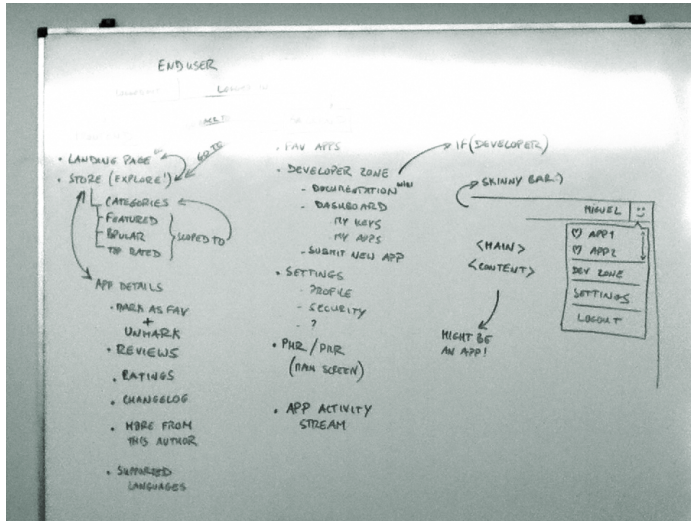 END USER
GO TO
• LANDING PAGE
• STORE (EXPLORE!)
CATEGORIES
FEATURED
POPULAR
TOP RATED
SCOPED TO
APP DETAILS
• MARK AS FAV
+
UNMARK
• REVIEWS
• RATINGS
• CHANGELOG
• MORE FROM
THIS AUTHOR
• SUPPORTED
LANGUAGES
• FAV APPS
• DEVELOPER ZONE
- DOCUMENTATION WIKI
- DASHBOARD
MY KEYS
MY APPS
- SUBMIT NEW APP
• SETTINGS
- PROFILE
- SECURITY
- ?
• PHR / PHR
(MAIN SCREEN)
• APP ACTIVITY
STREAM
IF (DEVELOPER)
SKINNY BAR :)
MIGUEL
♡ APP1
♡ APP2
DEV ZONE
SETTINGS
LOGOUT
<MAIN>
<CONTENT>
MIGHT BE
AN APP!